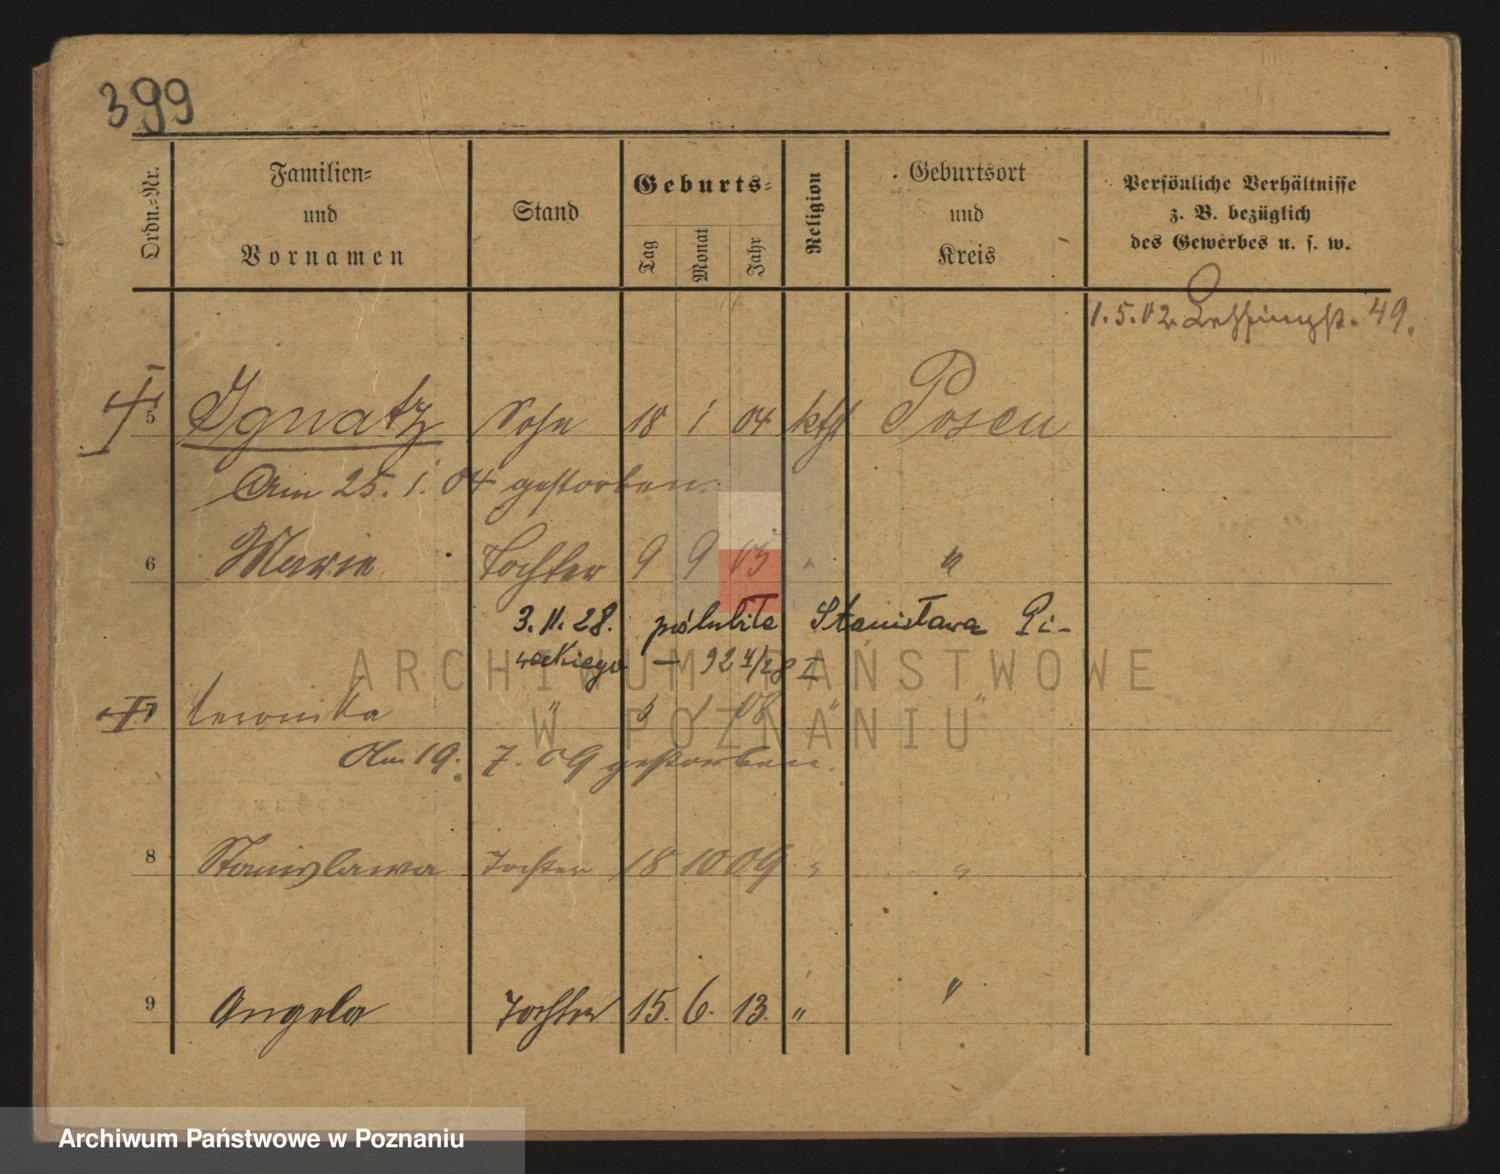 399
Ordn.-Nr.
Familien-
und
Vornamen
Stand
Geburts-
Tag
Monat
Jahr
Religion
Geburtsort
und
Kreis
Persönliche Verhältnisse
z. B. bezüglich
des Gewerbes u. s. w.
1. 5. 02. Lessingst. 49.
5 Ignatz Sohn 18 1 04 kth Posen
Am 25. 1. 04 gestorben.
6 Marie Tochter 9 9 05 " "
3. 11. 28. poślubiła Stanisława Pi-
weckiego — 924/28 I
7 Leronika " 5 1 08 " "
Am 19. 7. 09 gestorben.
8 Stanislawa Tochter 18 10 09 " "
9 Angela Tochter 15. 6. 13. " "
ARCHIWUM PAŃSTWOWE
W POZNANIU
Archiwum Państwowe w Poznaniu